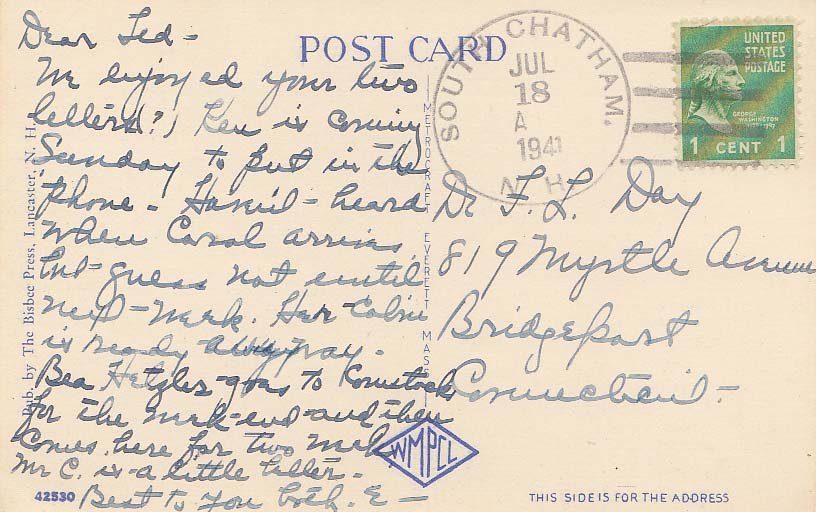 Dear Ted -
We enjoyed your two
letters(?) Ken is coming
Sunday to put in the
phone - Haven't heard
when Carol arrives,
but guess not until
next week. Her Cabin
is ready anyway.
Bea Hetzler goes to Comstocks
for the week-end and then
comes here for two weeks
Mr C. is a little better -
Best to you both. E -
POST CARD
SOUTH CHATHAM, N. H.
JUL
18
A
1941
UNITED
STATES
POSTAGE
GEORGE
WASHINGTON
1 CENT 1
Dr F. L. Day
819 Myrtle Avenue
Bridgeport
Connecticut -
Pub. by The Bisbee Press, Lancaster, N. H.
METROCRAFT EVERETT MASS
WMPCL
42530
THIS SIDE IS FOR THE ADDRESS